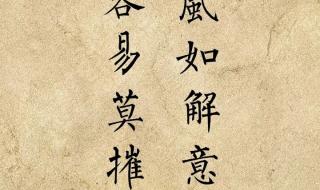 風如解意
容易莫摧